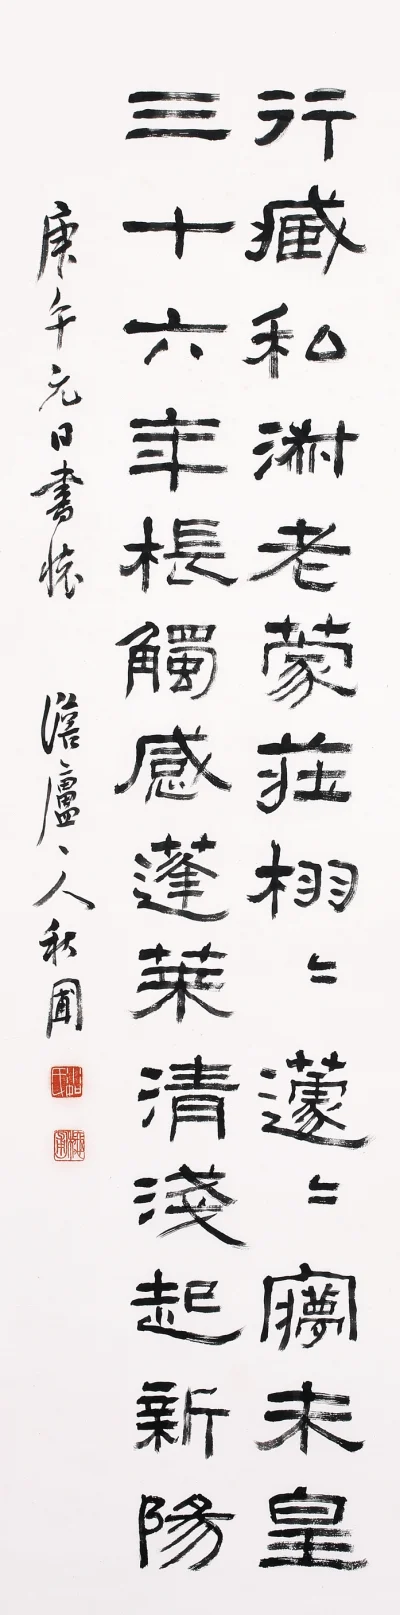 行臧私淑老蒙莊栩〻蘧〻㝱未皇
三十六年棖觸感蓬萊清淺起新陽
庚午元日書懷 澹廬〻人秋圃